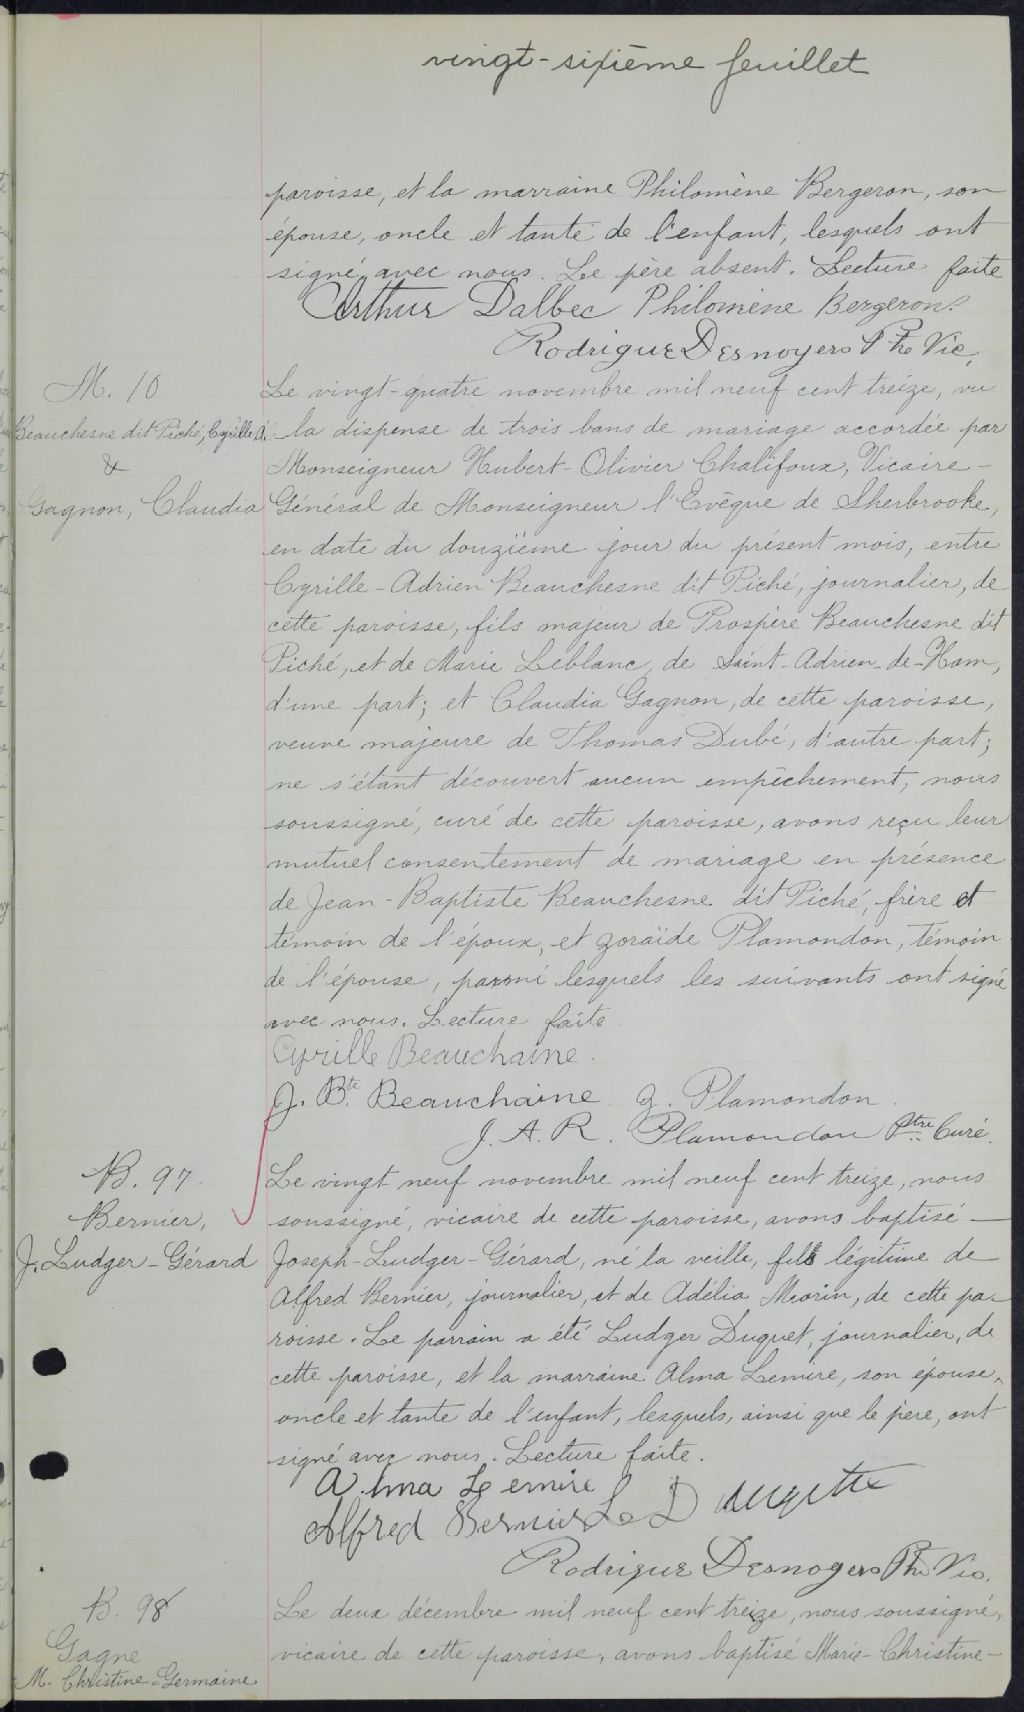 vingt-sixième feuillet
paroisse, et la marraine Philomène Bergeron, son
épouse, oncle et tante de l'enfant, lesquels ont
signé avec nous. Le père absent. Lecture faite
Arthur Dalbec Philomène Bergeron
Rodrigue Desnoyers Ptre Vic.
M. 10
Beauchesne dit Piché, Cyrille A.
&
Gagnon, Claudia
Le vingt-quatre novembre mil neuf cent treize, vu
la dispense de trois bans de mariage accordée par
Monseigneur Hubert-Olivier Chalifoux, Vicaire-
Général de Monseigneur l'Evêque de Sherbrooke,
en date du douzième jour du présent mois, entre
Cyrille-Adrien Beauchesne dit Piché, journalier, de
cette paroisse, fils majeur de Prospère Beauchesne dit
Piché, et de Marie Leblanc, de Saint-Adrien-de-Ham,
d'une part; et Claudia Gagnon, de cette paroisse,
veuve majeure de Thomas Dubé, d'autre part;
ne s'étant découvert aucun empêchement, nous
soussigné, curé de cette paroisse, avons reçu leur
mutuel consentement de mariage en présence
de Jean-Baptiste Beauchesne dit Piché, frère et
témoin de l'époux, et Zoraïde Plamondon, témoin
de l'épouse, parmi lesquels les suivants ont signé
avec nous. Lecture faite
Cyrille Beauchaine.
J. Bte Beauchaine Z. Plamondon.
J. A. R. Plamondon Ptre Curé.
B. 97.
Bernier,
J. Ludger-Gérard
Le vingt neuf novembre mil neuf cent treize, nous
soussigné, vicaire de cette paroisse, avons baptisé —
Joseph-Ludger-Gérard, né la veille, fils légitime de
Alfred Bernier, journalier, et de Adélia Morin, de cette pa-
roisse. Le parrain a été Ludger Duquet, journalier, de
cette paroisse, et la marraine Alma Lemire, son épouse,
oncle et tante de l'enfant, lesquels, ainsi que le père, ont
signé avec nous. Lecture faite.
Alma Lemire
Alfred Bernier L D uquette
Rodrigue Desnoyers Ptre Vic.
B. 98
Gagne
M. Christine-Germaine
Le deux décembre mil neuf cent treize, nous soussigné,
vicaire de cette paroisse, avons baptisé Marie-Christine-